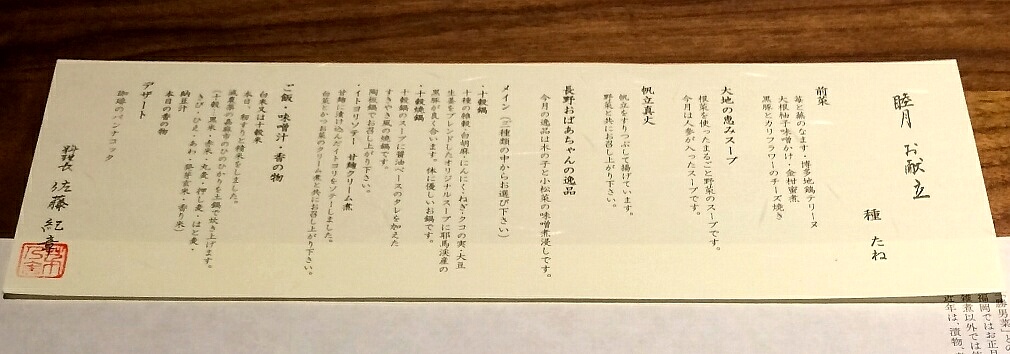 睦月 お献立
種 たね
前菜
苺と蕪のなます・博多地鶏テリーヌ
大根柚子味噌かけ・金柑蜜煮
黒豚とカリフラワーのチーズ焼き
大地の恵みスープ
根菜を使ったまるごと野菜のスープです。
今月は人参が入ったスープです。
帆立真丈
帆立をすりつぶして揚げています。
野菜と共にお召し上がり下さい。
長野おばあちゃんの逸品
今月の逸品は木の子と小松菜の味噌煮浸しです。
メイン(三種類の中からお選び下さい)
・十穀鍋
十種の雑穀・白胡麻・にんにく・ねぎ・クコの実・大豆
生姜をブレンドしたオリジナルスープに耶馬渓産の
黒豚が良く合います。体に優しいお鍋です。
・十穀焼鍋
十穀鍋のスープに醤油ベースのタレを加えた
すきやき風の焼鍋です。
陶板鍋でお召し上がり下さい。
・イトヨリソテー 甘麹クリーム煮
甘麹に漬け込んだイトヨリをソテーしました。
白菜とかつお菜のクリーム煮と共にお召し上がり下さい。
ご飯・味噌汁・香の物
白米又は十穀米
本日、籾すりと精米をしました。
減農薬の嘉麻市のひのひかりを土鍋で炊き上げます。
(十穀・黒米・赤米・丸麦・押し麦・はと麦・
きび・ひえ・あわ・発芽玄米・香り米)
納豆汁
本日の香の物
デザート
珈琲のパンナコッタ
料理長 佐藤紀
「勝男菜」と
福岡ではお正月
雑煮以外では
近年は、漬物、